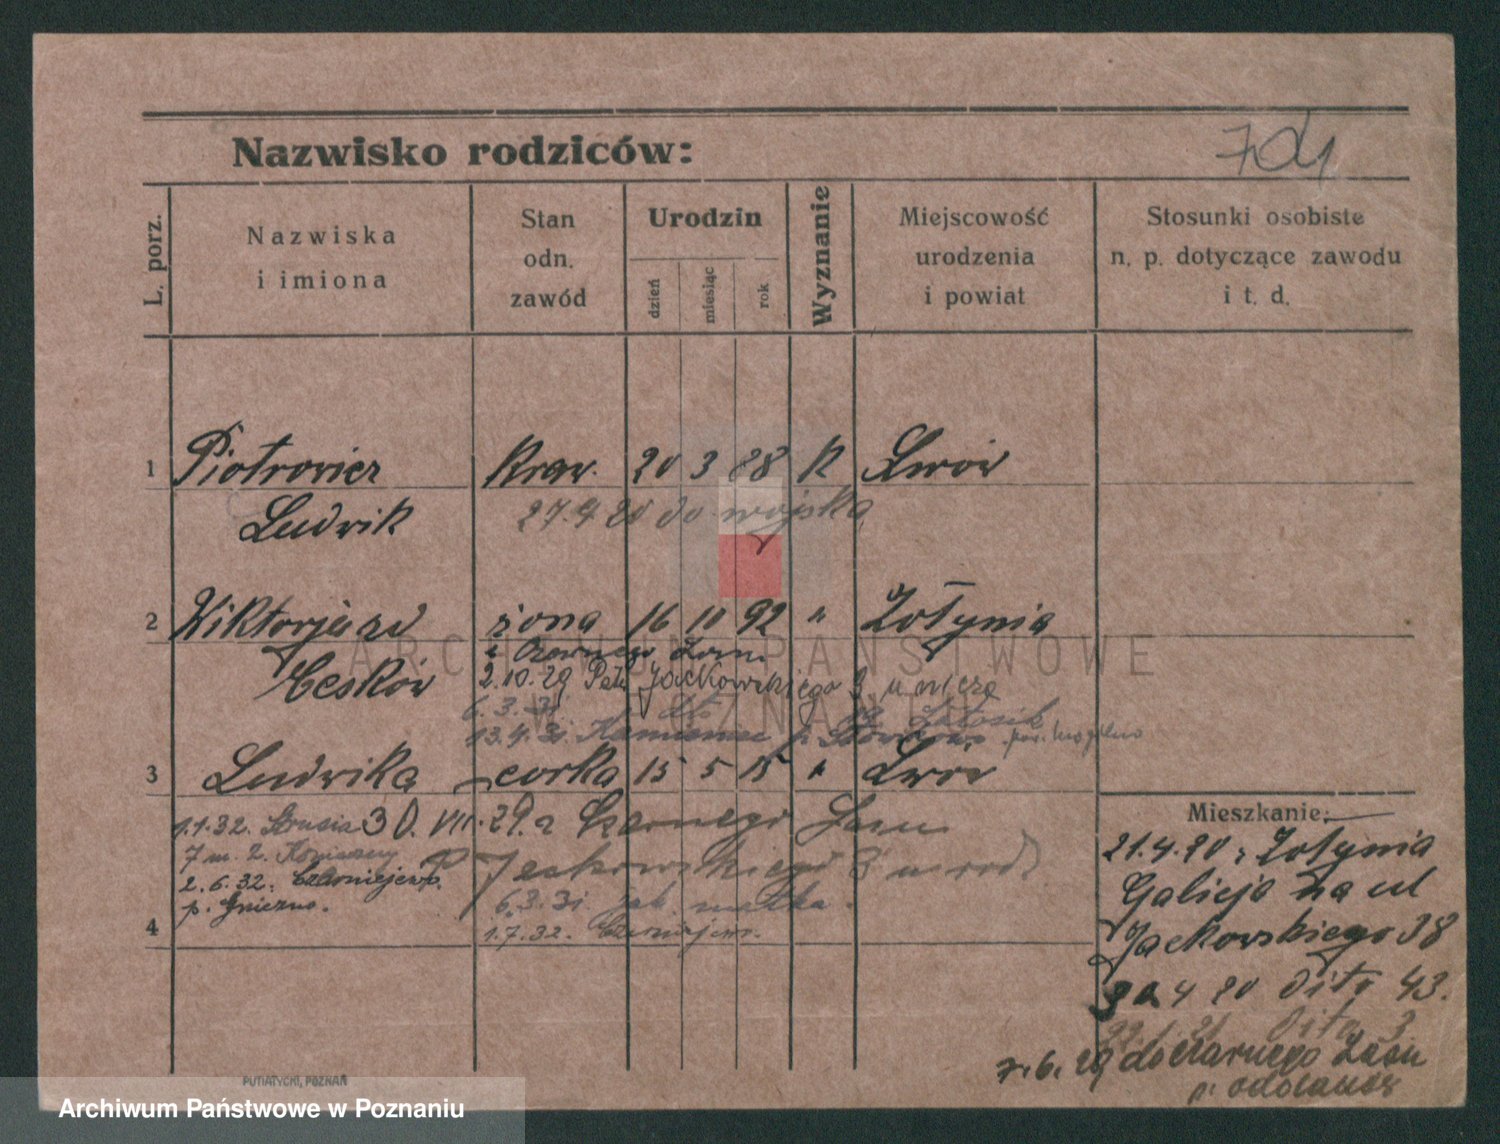 Nazwisko rodziców:
L. porz.
Nazwiska
i imiona
Stan
odn.
zawód
Urodzin
dzień
miesiąc
rok
Wyznanie
Miejscowość
urodzenia
i powiat
Stosunki osobiste
n. p. dotyczące zawodu
i t. d.
1 Piotrowicz kraw. 20 3 88 K Lwów
Ludwik 27.4 20 do wojska
2 Wiktorja zd żona 16 10 92 " Żołynia
z Czarnego Lasu
2.10.29 Jackowskiego 3
6.3.31
13.4.31. Kamieniec p.
3 Ludwika córka 15 5 15 " Lwów
1.1.32. 30. VII. 29. z Czarnego Lasu
7 m. 2. Jackowskiego 3
2.6.32. Czerniejewo
p. Gniezno. 6.3.31. jak matka.
4 1.7.32.
Mieszkanie:
21.4.20 z Żołynia
Galicja na ul
Jackowskiego 38
4 20 dito 43.
dito 3
7.6.29 do Czarnego Lasu
p. Odolanów
PUTIATYCKI, POZNAŃ
ARCHIWUM PAŃSTWOWE
W POZNANIU
Archiwum Państwowe w Poznaniu